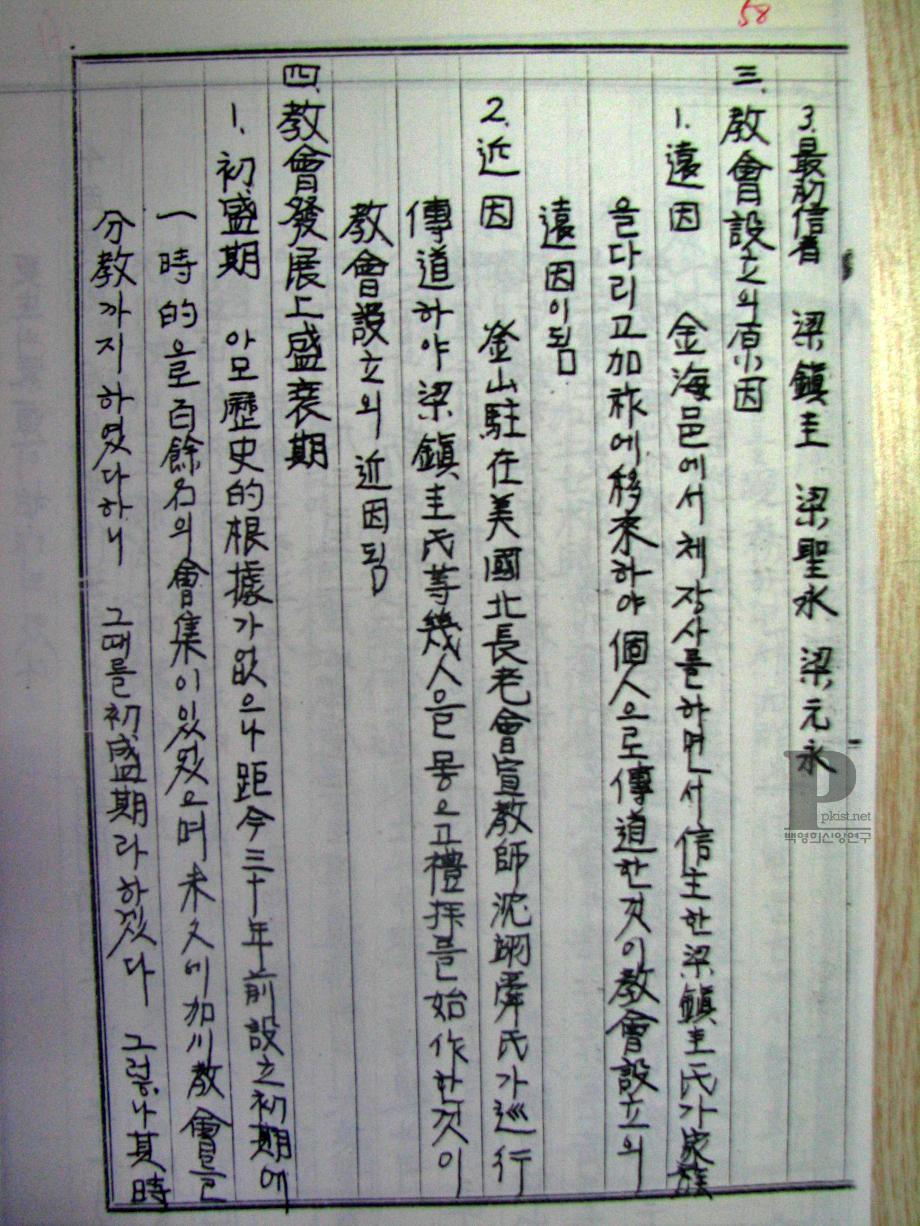 58
3. 最初信者 梁鎭圭 梁聖永 梁元永
三. 敎會設立의 原因
1. 遠因 金海邑에서 체장사를하면서 信主한 梁鎭圭氏가 家族
을다리고 加祚에 移來하야 個人으로 傳道한것이 敎會設立의
遠因이됨
2. 近因 釜山駐在美國北長老會宣敎師 沈翊舜氏가 巡行
傳道하야 梁鎭圭氏等 幾人을 몽으고 禮拜를 始作한것이
敎會設立의 近因됨
四. 敎會發展上盛衰期
1. 初盛期 아모歷史的根據가 없으나 距今三十年前 設立初期에
一時的으로 百餘名의 會集이 있었으며 未久에 加川敎會를
分敎까지 하였다하니 그때를 初盛期라하겠다 그렇나 其時
pkist.net
백영희신앙연구